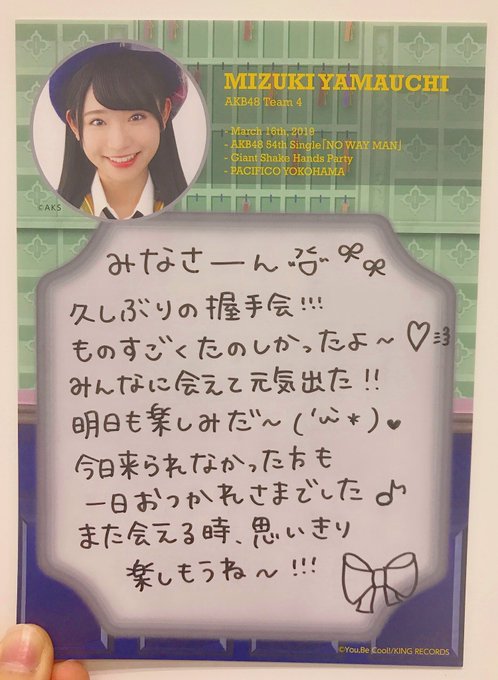 MIZUKI YAMAUCHI
AKB48 Team 4
- March 16th, 2019
- AKB48 54th Single「NO WAY MAN」
- Giant Shake Hands Party
- PACIFICO YOKOHAMA
©AKS
みなさーん
久しぶりの握手会!!!
ものすごくたのしかったよ〜♡
みんなに会えて元気出た!!
明日も楽しみだ〜(´ω`*)♥
今日来られなかった方も
一日おつかれさまでした♪
また会える時、思いきり
楽しもうね〜!!!
©You,Be Cool!/KING RECORDS